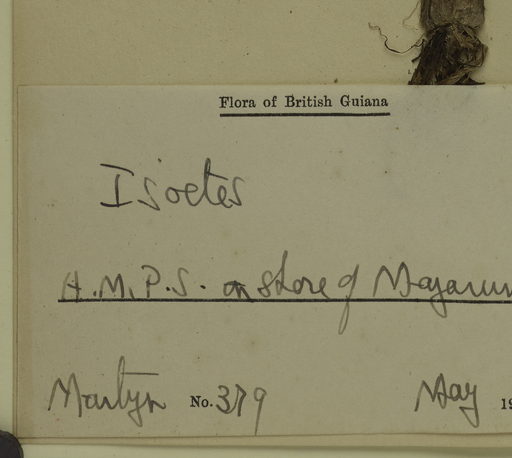 Flora of British Guiana
Isoetes
H.M.P.S. on shore of Mazarun
Martyn No. 379 May 19